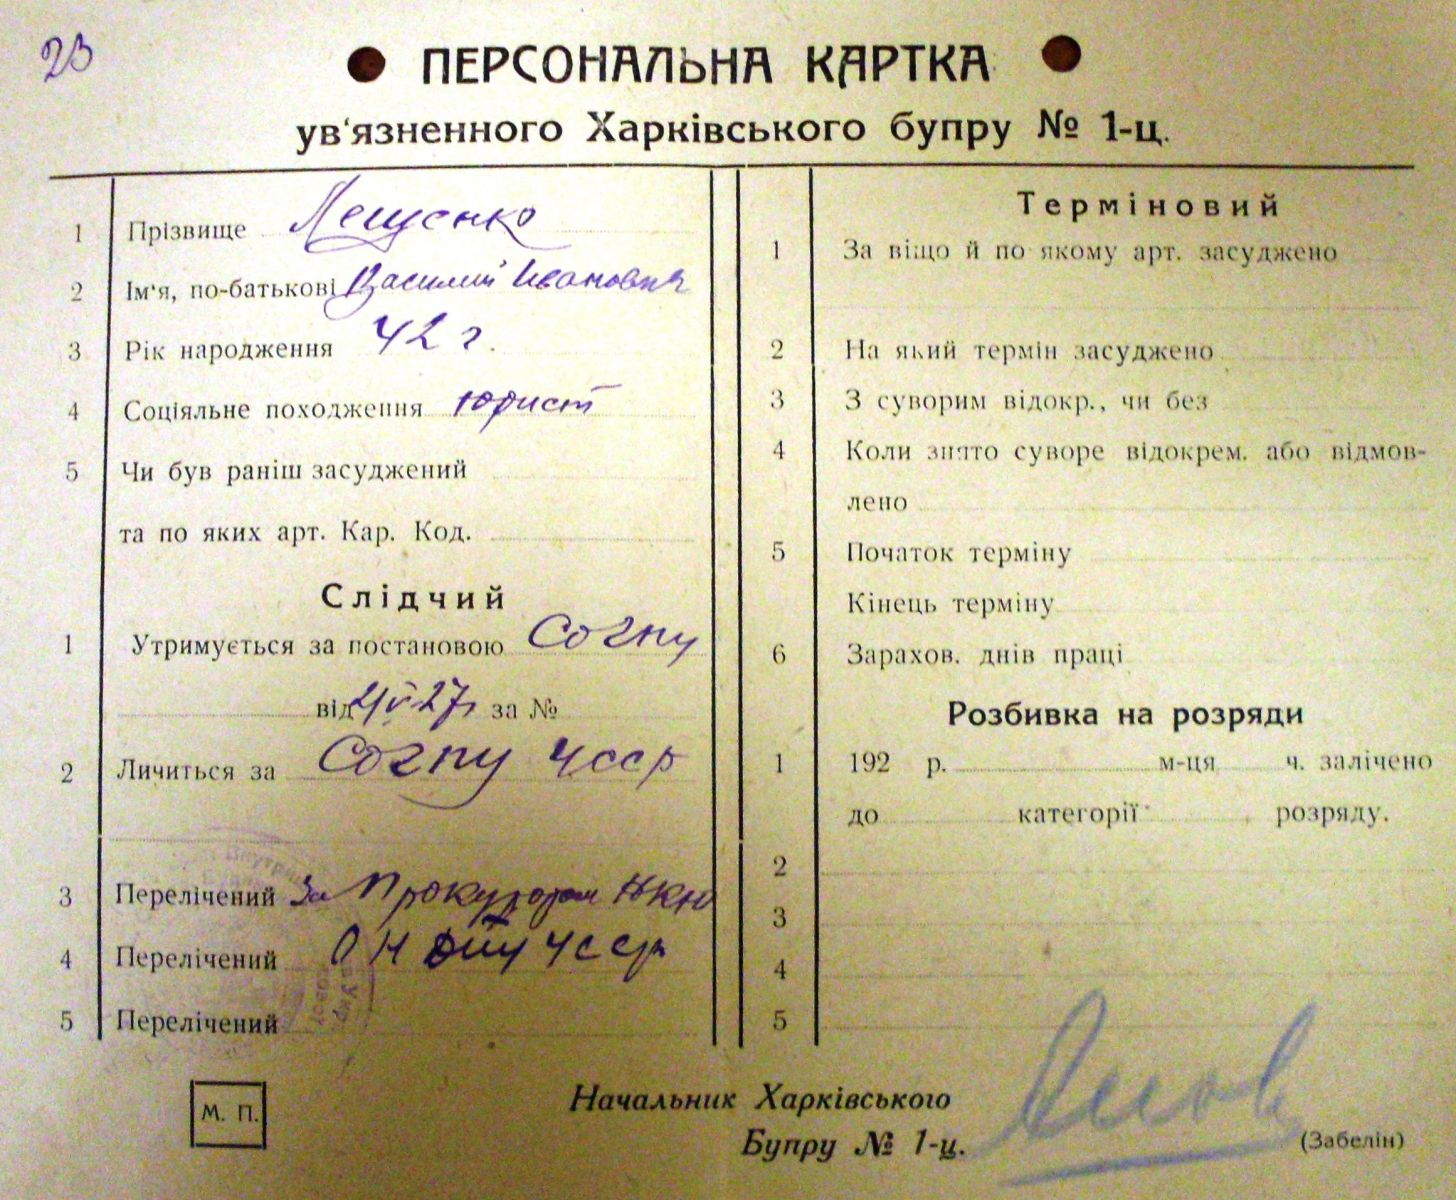 23
ПЕРСОНАЛЬНА КАРТКА
ув'язненного Харківського бупру № 1-ц.
1 Прізвище Лещенко
2 Ім'я, по-батькові Василий Иванович
3 Рік народження 42 г.
4 Соціяльне походження юрист
5 Чи був раніш засуджений
та по яких арт. Кар. Код.
Слідчий
1 Утримується за постановою СОГПУ
від 2/V 27г за №
2 Личиться за СОГПУ УССР
3 Перелічений За Прокурором НКЮ
4 Перелічений УССР
5 Перелічений
М. П.
Терміновий
1 За віщо й по якому арт. засуджено
2 На який термін засуджено
3 З суворим відокр., чи без
4 Коли знято суворе відокрем. або відмов-
лено
5 Початок терміну
Кінець терміну
6 Зарахов. днів праці
Розбивка на розряди
1 192 р. м-ця ч. залічено
до категорії розряду.
2
3
4
5
Начальник Харківського
Бупру № 1-ц.
(Забелін)